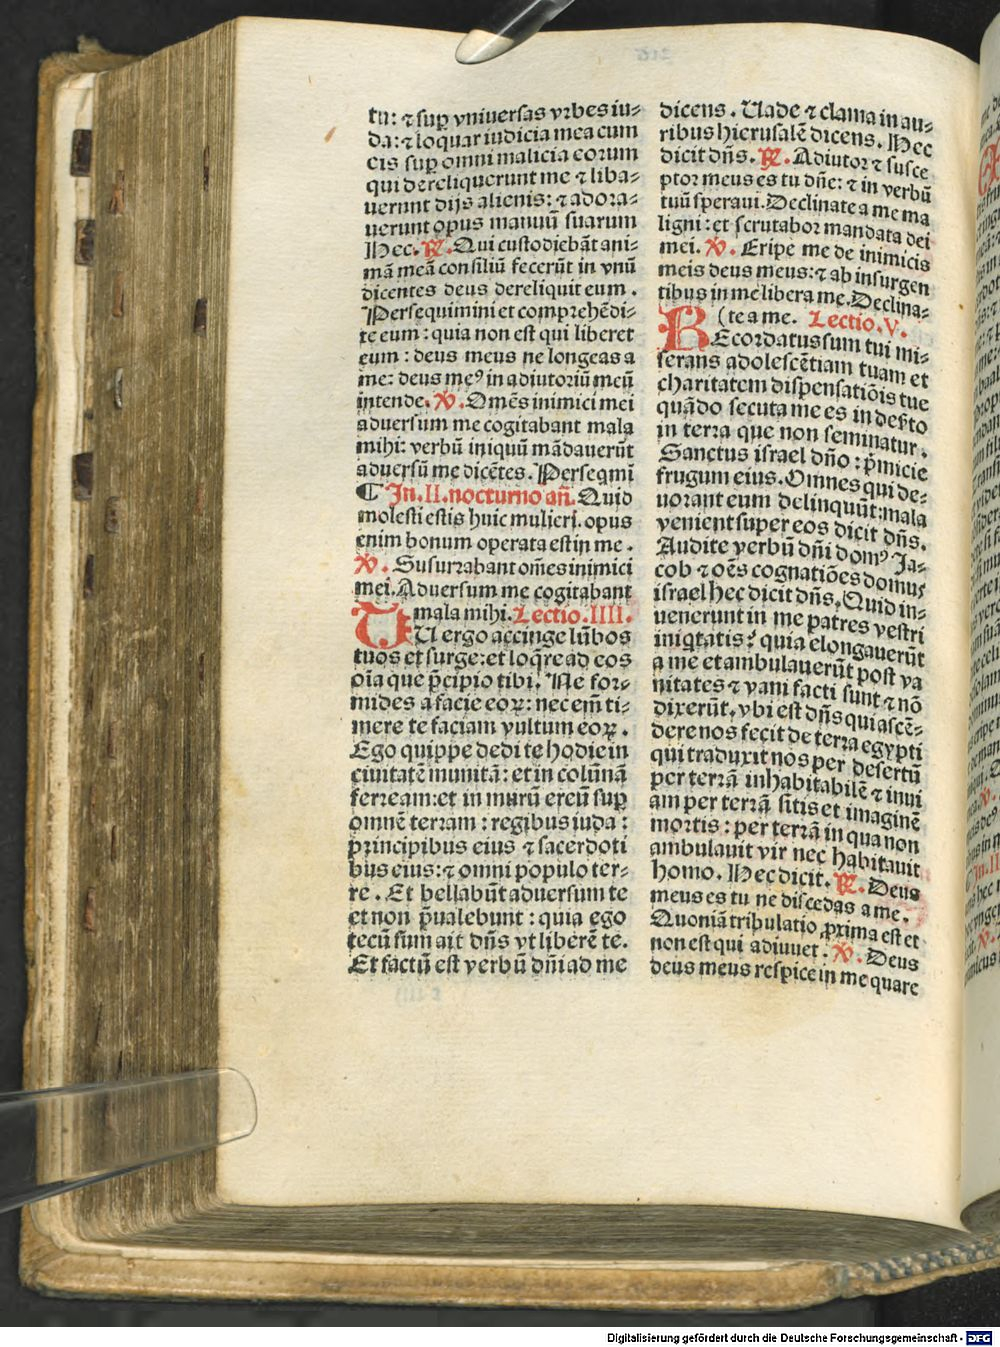 tu: ⁊ sup̱ vniuersas vrbes iu⸗
da: ⁊ loquar iudicia mea cum
eis sup̱ omni malicia eorum
qui dereliquerunt me ⁊ liba⸗
uerunt dijs alienis: ⁊ adora⸗
uerunt opus manuū suarum
Hec. ℟. Qui custodiebāt ani⸗
mā meā consiliū fecerūt in vnū
dicentes deus dereliquit eum.
Persequimini et comprehēdi⸗
te eum: quia non est qui liberet
eum: deus meus ne longeas a
me: deus meꝰ in adiutoriū meū
intende. ℣. Omēs inimici mei
aduersum me cogitabant mala
mihi: verbū iniquū mādauerūt
aduersū me dicētes. Perseqmī
¶ In. II. nocturno an̄. Quid
molesti estis huic mulieri. opus
enim bonum operata est in me.
℣. Susurrabant om̄es inimici
mei. Aduersum me cogitabant
mala mihi. Lectio. IIII.
TU ergo accinge lūbos
tuos et surge: et loq̄re ad eos
oīa que p̄cipio tibi. Ne for⸗
mides a facie eoꝝ: nec em̄ ti⸗
mere te faciam vultum eoꝝ.
Ego quippe dedi te hodie in
ciuitatē munitā: et in colūnā
ferream: et in murū ereū sup̱
omnē terram: regibus iuda:
principibus eius ⁊ sacerdoti
bus eius: ⁊ omni populo ter⸗
re. Et bellabūt aduersum te
et non p̄ualebunt: quia ego
tecū sum ait dn̄s vt liberē te.
Et factū est verbū dn̄i ad me
dicens. Uade ⁊ clama in au⸗
ribus hierusalē dicens. Hec
dicit dn̄s. ℟. Adiutor ⁊ susce
ptor meus es tu dn̄e: ⁊ in verbū
tuū speraui. Declinate a me ma
ligni: et scrutabor mandata dei
mei. ℣. Eripe me de inimicis
meis deus meus: ⁊ ab insurgen
tibus in me libera me. Declina⸗
(te a me. Lectio. V.
REcordatus sum tui mi⸗
serans adolescētiam tuam et
charitatem dispensatiōis tue
quādo secuta me es in deẜto
in terra que non seminatur.
Sanctus israel dn̄o: p̄micie
frugum eius. Omnes qui de⸗
uorant eum delinquūt: mala
venient super eos dicit dn̄s.
Audite verbū dn̄i domꝰ Ja⸗
cob ⁊ oēs cognatiōes domus
israel hec dicit dn̄s. Quid in⸗
uenerunt in me patres vestri
iniqtatis? quia elongauerūt
a me et ambulauerūt post va
nitates ⁊ vani facti sunt ⁊ nō
dixerūt. vbi est dn̄s qui ascē⸗
dere nos fecit de terra egypti
qui traduxit nos per desertū
per terrā inhabitabilē ⁊ inui
am per terrā sitis et imaginē
mortis: per terrā in qua non
ambulauit vir nec habitauit
homo. Hec dicit. ℟. Deus
meus es tu ne discedas a me.
Quoniā tribulatio ꝓxima est et
non est qui adiuuet. ℣. Deus
deus meus respice in me quare
Digitalisierung gefördert durch die Deutsche Forschungsgemeinschaft - DFG